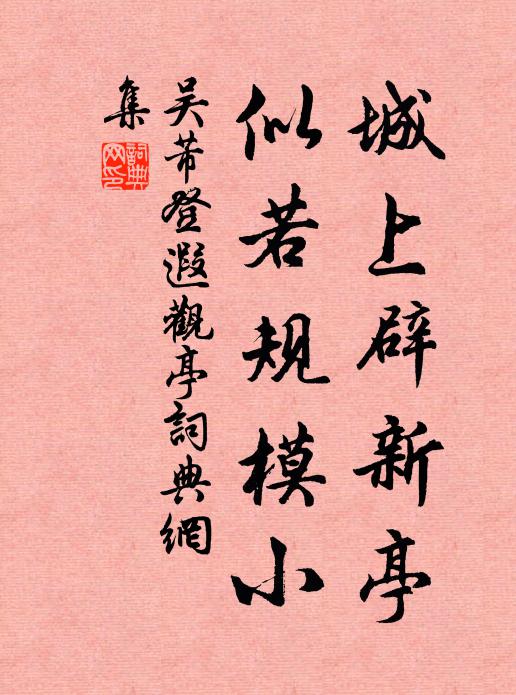 城上辟新亭
似若规模小
吴芾登遐觀亭詞典網
集
詞典網印